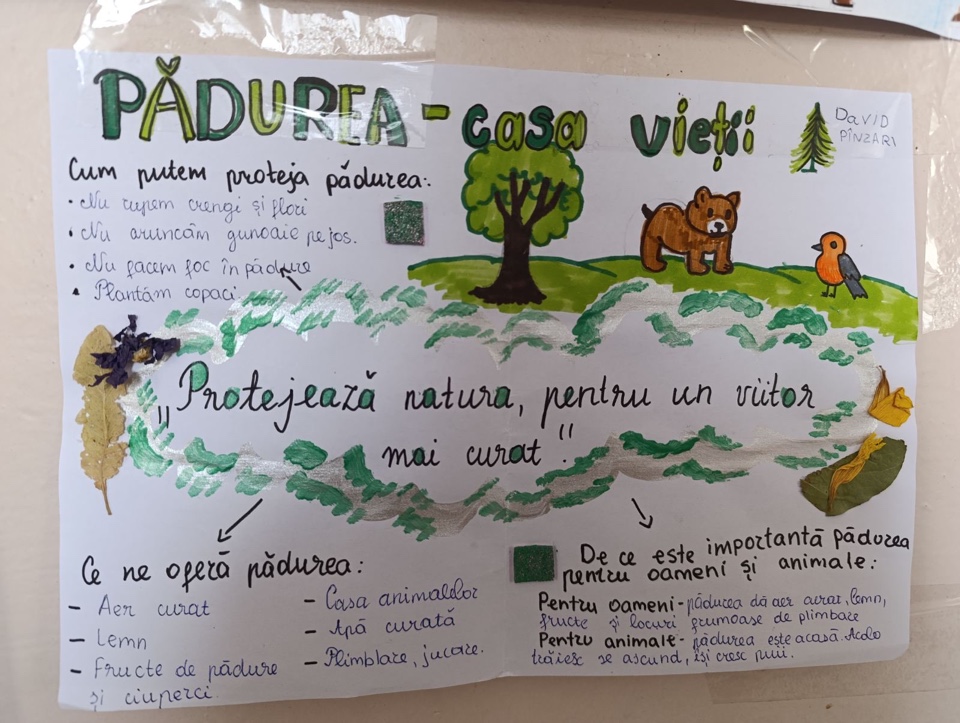 PĂDUREA - casa vieții
DAVID
PÎNZARI
Cum putem proteja pădurea:
• Nu rupem crengi și flori
• Nu aruncăm gunoaie pe jos.
• Nu facem foc în pădure
• Plantăm copaci
„Protejează natura, pentru un viitor
mai curat".
Ce ne oferă pădurea:
- Aer curat
- Lemn
- Fructe de pădure
și ciuperci.
- Casa animalelor
- Apă curată
- Plimblare, jucare.
De ce este importantă pădurea
pentru oameni și animale:
Pentru oameni - pădurea dă aer curat, lemn,
fructe și locuri frumoase de plimbare
Pentru animale - pădurea este acasă. Acolo
trăiesc se ascund, își cresc puii.